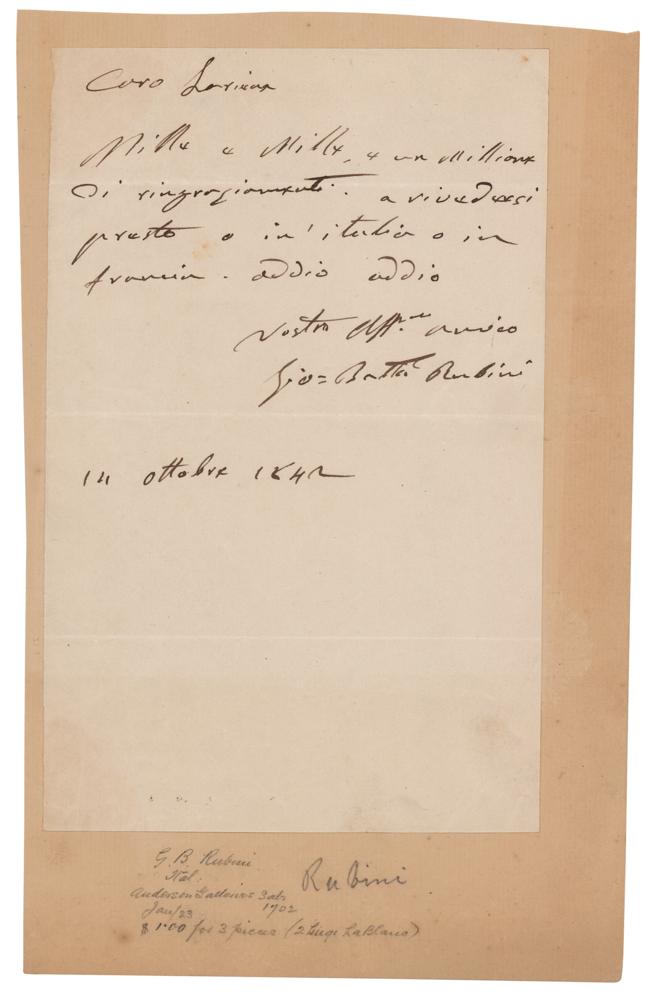 Caro
Mille e Mille, e un Millione
Di ringraziamenti. a rivedersi
presto o in' italia o in
francia. addio addio
Vostro Aff.mo amico
Gio= Batta Rubini
14 ottobre 1842
G. B. Rubini
Ital.
Anderson Galleries Sale
Jan/23 1702
$1.00 for 3 pieces (2 Luigi LaBlanc)
Rubini